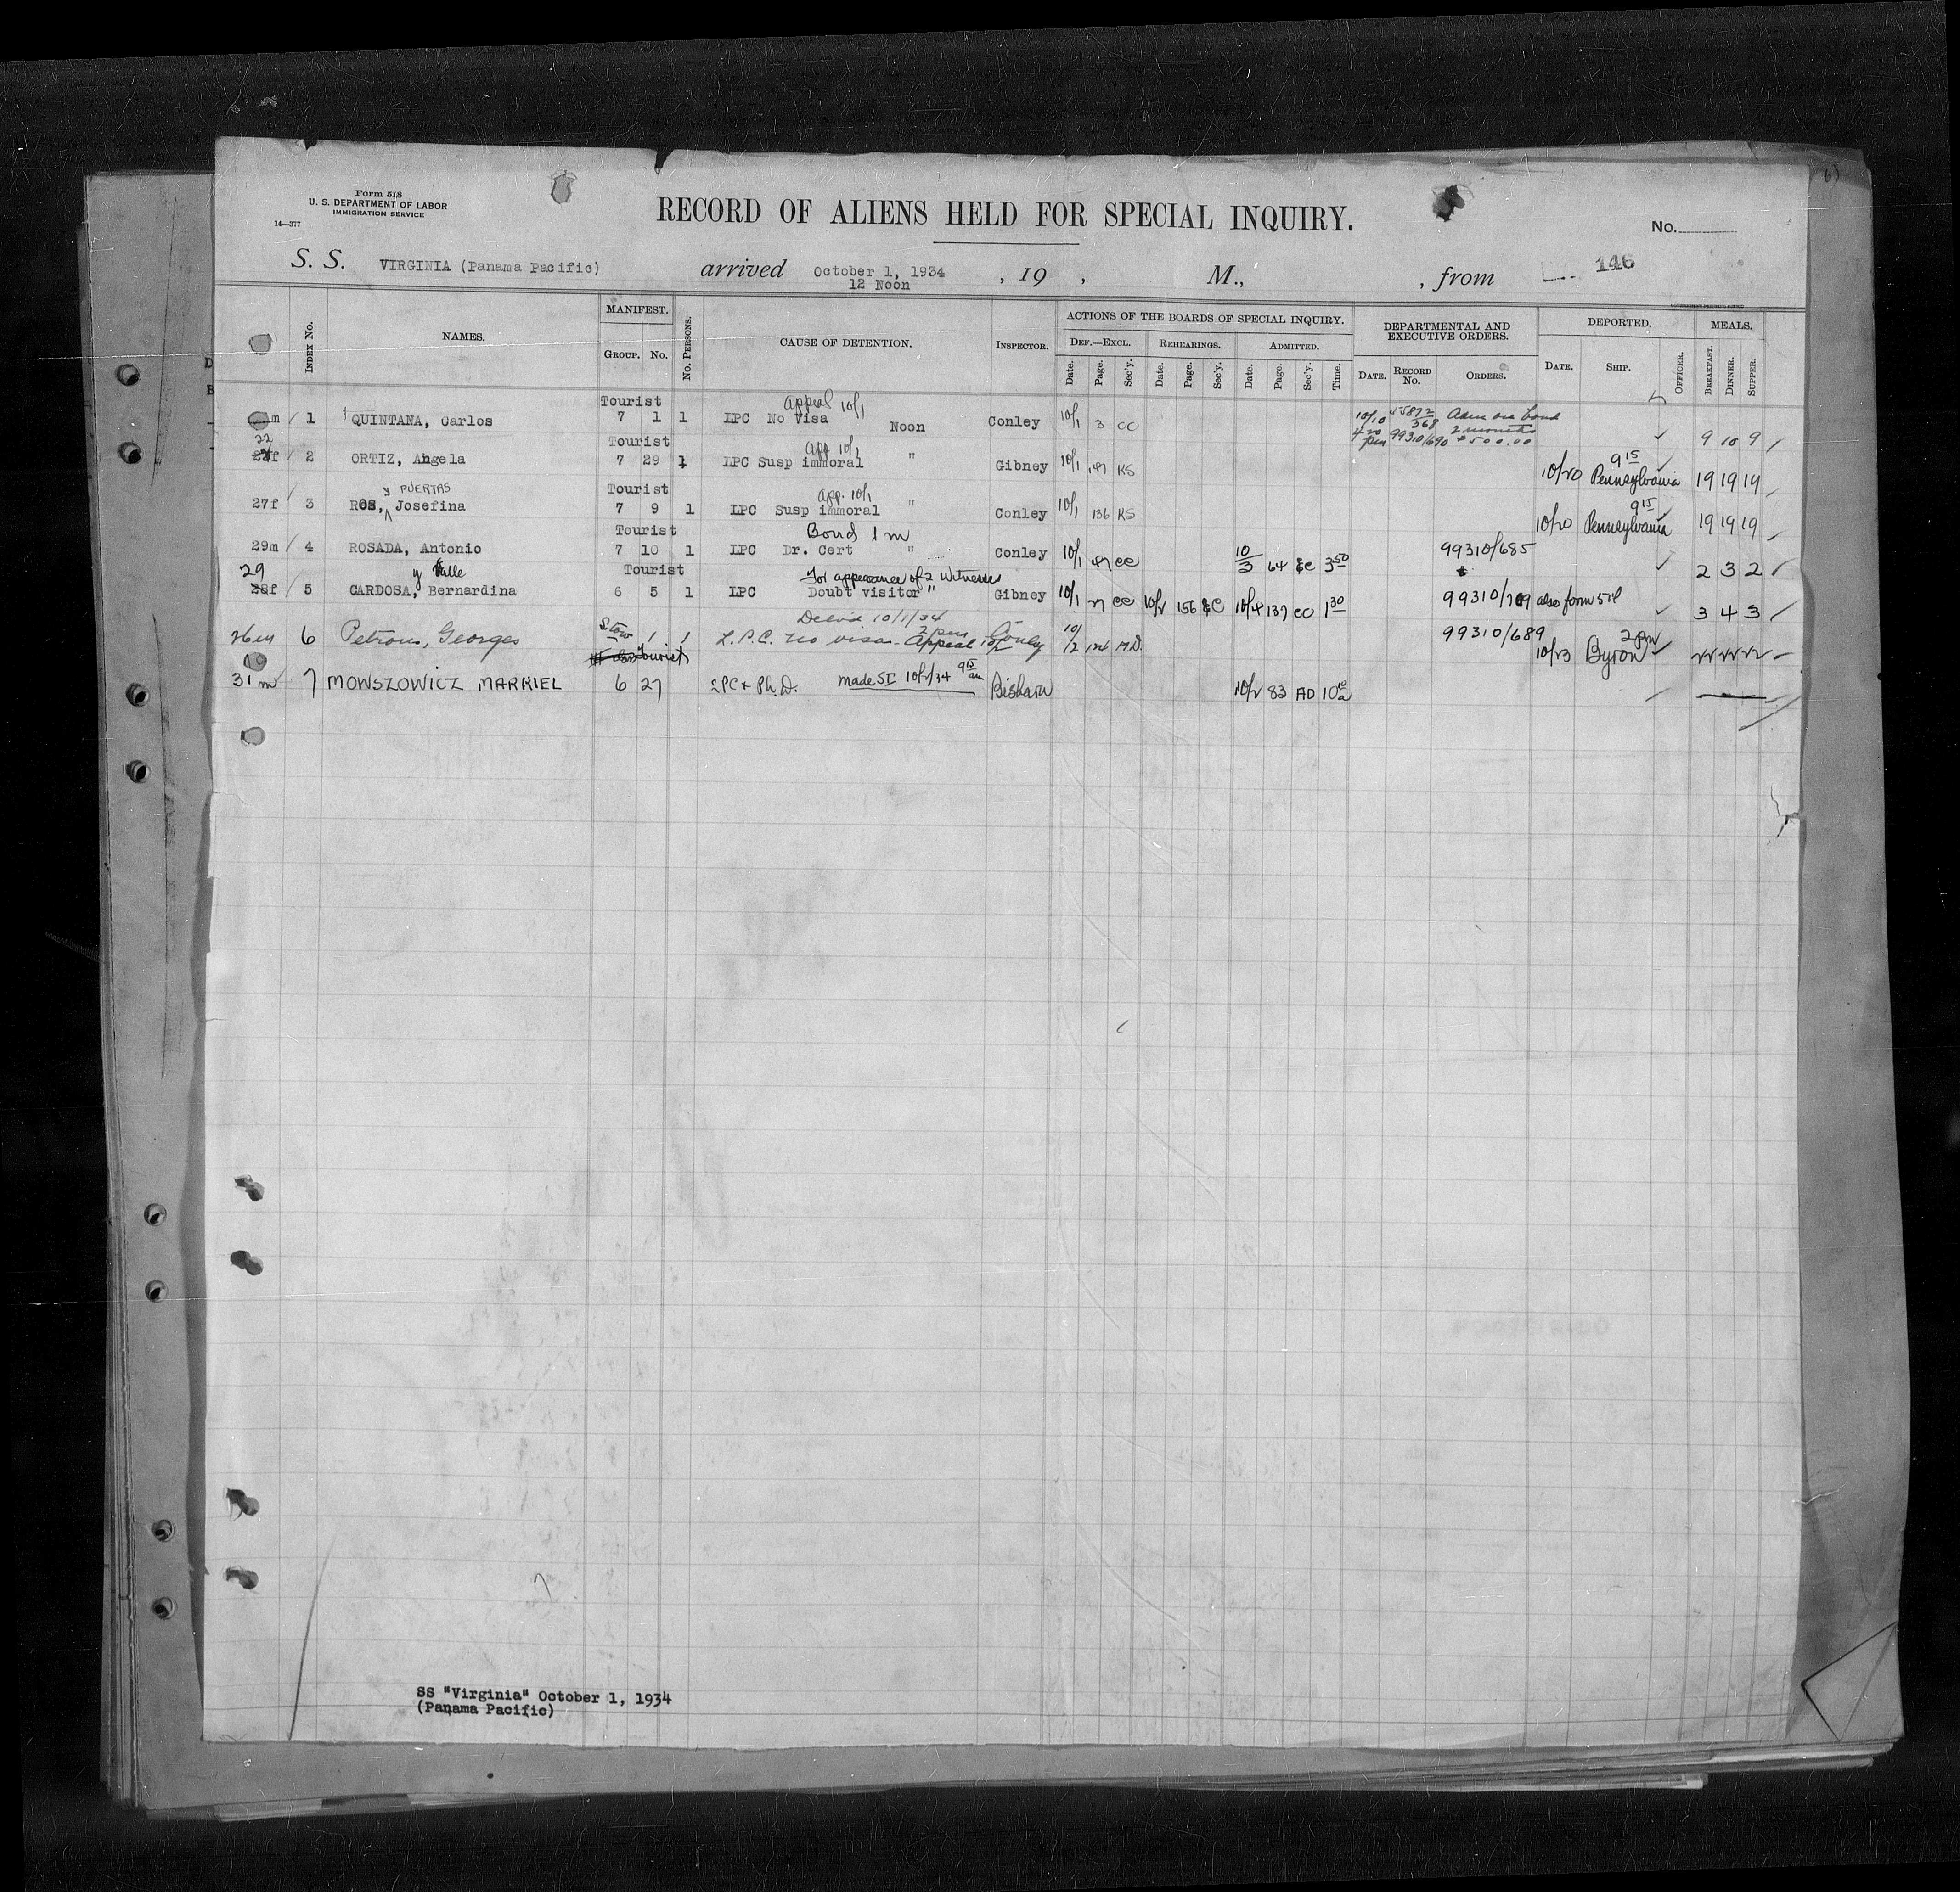 Form 518
U. S. DEPARTMENT OF LABOR
IMMIGRATION SERVICE
14—377
RECORD OF ALIENS HELD FOR SPECIAL INQUIRY.
No.
S. S. VIRGINIA (Panama Pacific) arrived October 1, 1934 , 19 , M., , from
12 Noon
146
INDEX No. NAMES. MANIFEST. GROUP. No. No. PERSONS. CAUSE OF DETENTION. INSPECTOR.
ACTIONS OF THE BOARDS OF SPECIAL INQUIRY.
DEF.—EXCL. REHEARINGS. ADMITTED.
Date. Page. Sec'y. Date. Page. Sec'y. Date. Page. Sec'y. Time.
DEPARTMENTAL AND EXECUTIVE ORDERS.
DATE. RECORD No. ORDERS.
DEPORTED.
DATE. SHIP. OFFICER.
MEALS.
BREAKFAST. DINNER. SUPPER.
Tourist Appeal 10/1
m 1 QUINTANA, Carlos 7 1 1 LPC No Visa Noon Conley 10/1 3 CC 10/10 55872/368 Adm on bond 2 months 9 10 9
99310/690 $500.00
Tourist App 10/1
22 f 2 ORTIZ, Angela 7 29 1 LPC Susp immoral " Gibney 10/1 KS 10/20 Pennsylvania 9 15 19 19 19
y PUERTAS Tourist App. 10/1
27f 3 ROS, Josefina 7 9 1 LPC Susp immoral " Conley 10/1 136 KS 10/20 Pennsylvania 9 15 19 19 19
Tourist Bond 1 m
29m 4 ROSADA, Antonio 7 10 1 LPC Dr. Cert " Conley 10/1 CC 10/3 64 3 50 99310/685 2 3 2
29 y Valle Tourist For appearance of 2 Witnesses
28f 5 CARDOSA, Bernardina 6 5 1 LPC Doubt visitor " Gibney 10/1 CC 10/2 156 10/4 137 CC 1 30 99310/709 also form 3 4 3
Stow Deliv'd 10/1/34 2 pm
26m 6 Petrous, Georges 1 1 L.P.C. no visa Appeal Conley 10/2 M.D. 99310/689 10/23 Byron 2 pm
Tourist
31m 7 MOWSZOWICZ MARKIEL 6 27 LPC + Ph.D. made SI 10/2/34 9 15 am Bishara 10/2 83 AD 10 10 a
SS "Virginia" October 1, 1934
(Panama Pacific)